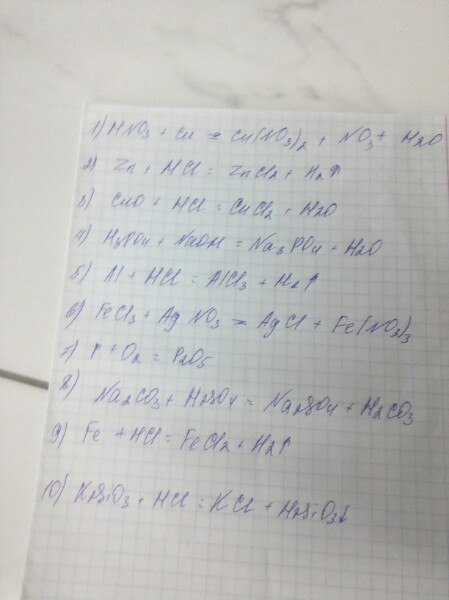 1) HNO3 + Cu = Cu(NO3)2 + NO3 + H2O
2) Zn + HCl = ZnCl2 + H2↑
3) CuO + HCl = CuCl2 + H2O
4) H3PO4 + NaOH = Na3PO4 + H2O
5) Al + HCl = AlCl3 + H2↑
6) FeCl3 + AgNO3 = AgCl + Fe(NO2)3
7) P + O2 = P2O5
8) Na2CO3 + H2SO4 = Na2SO4 + H2CO3
9) Fe + HCl = FeCl2 + H2↑
10) K2SiO3 + HCl = KCl + H2SiO3↓